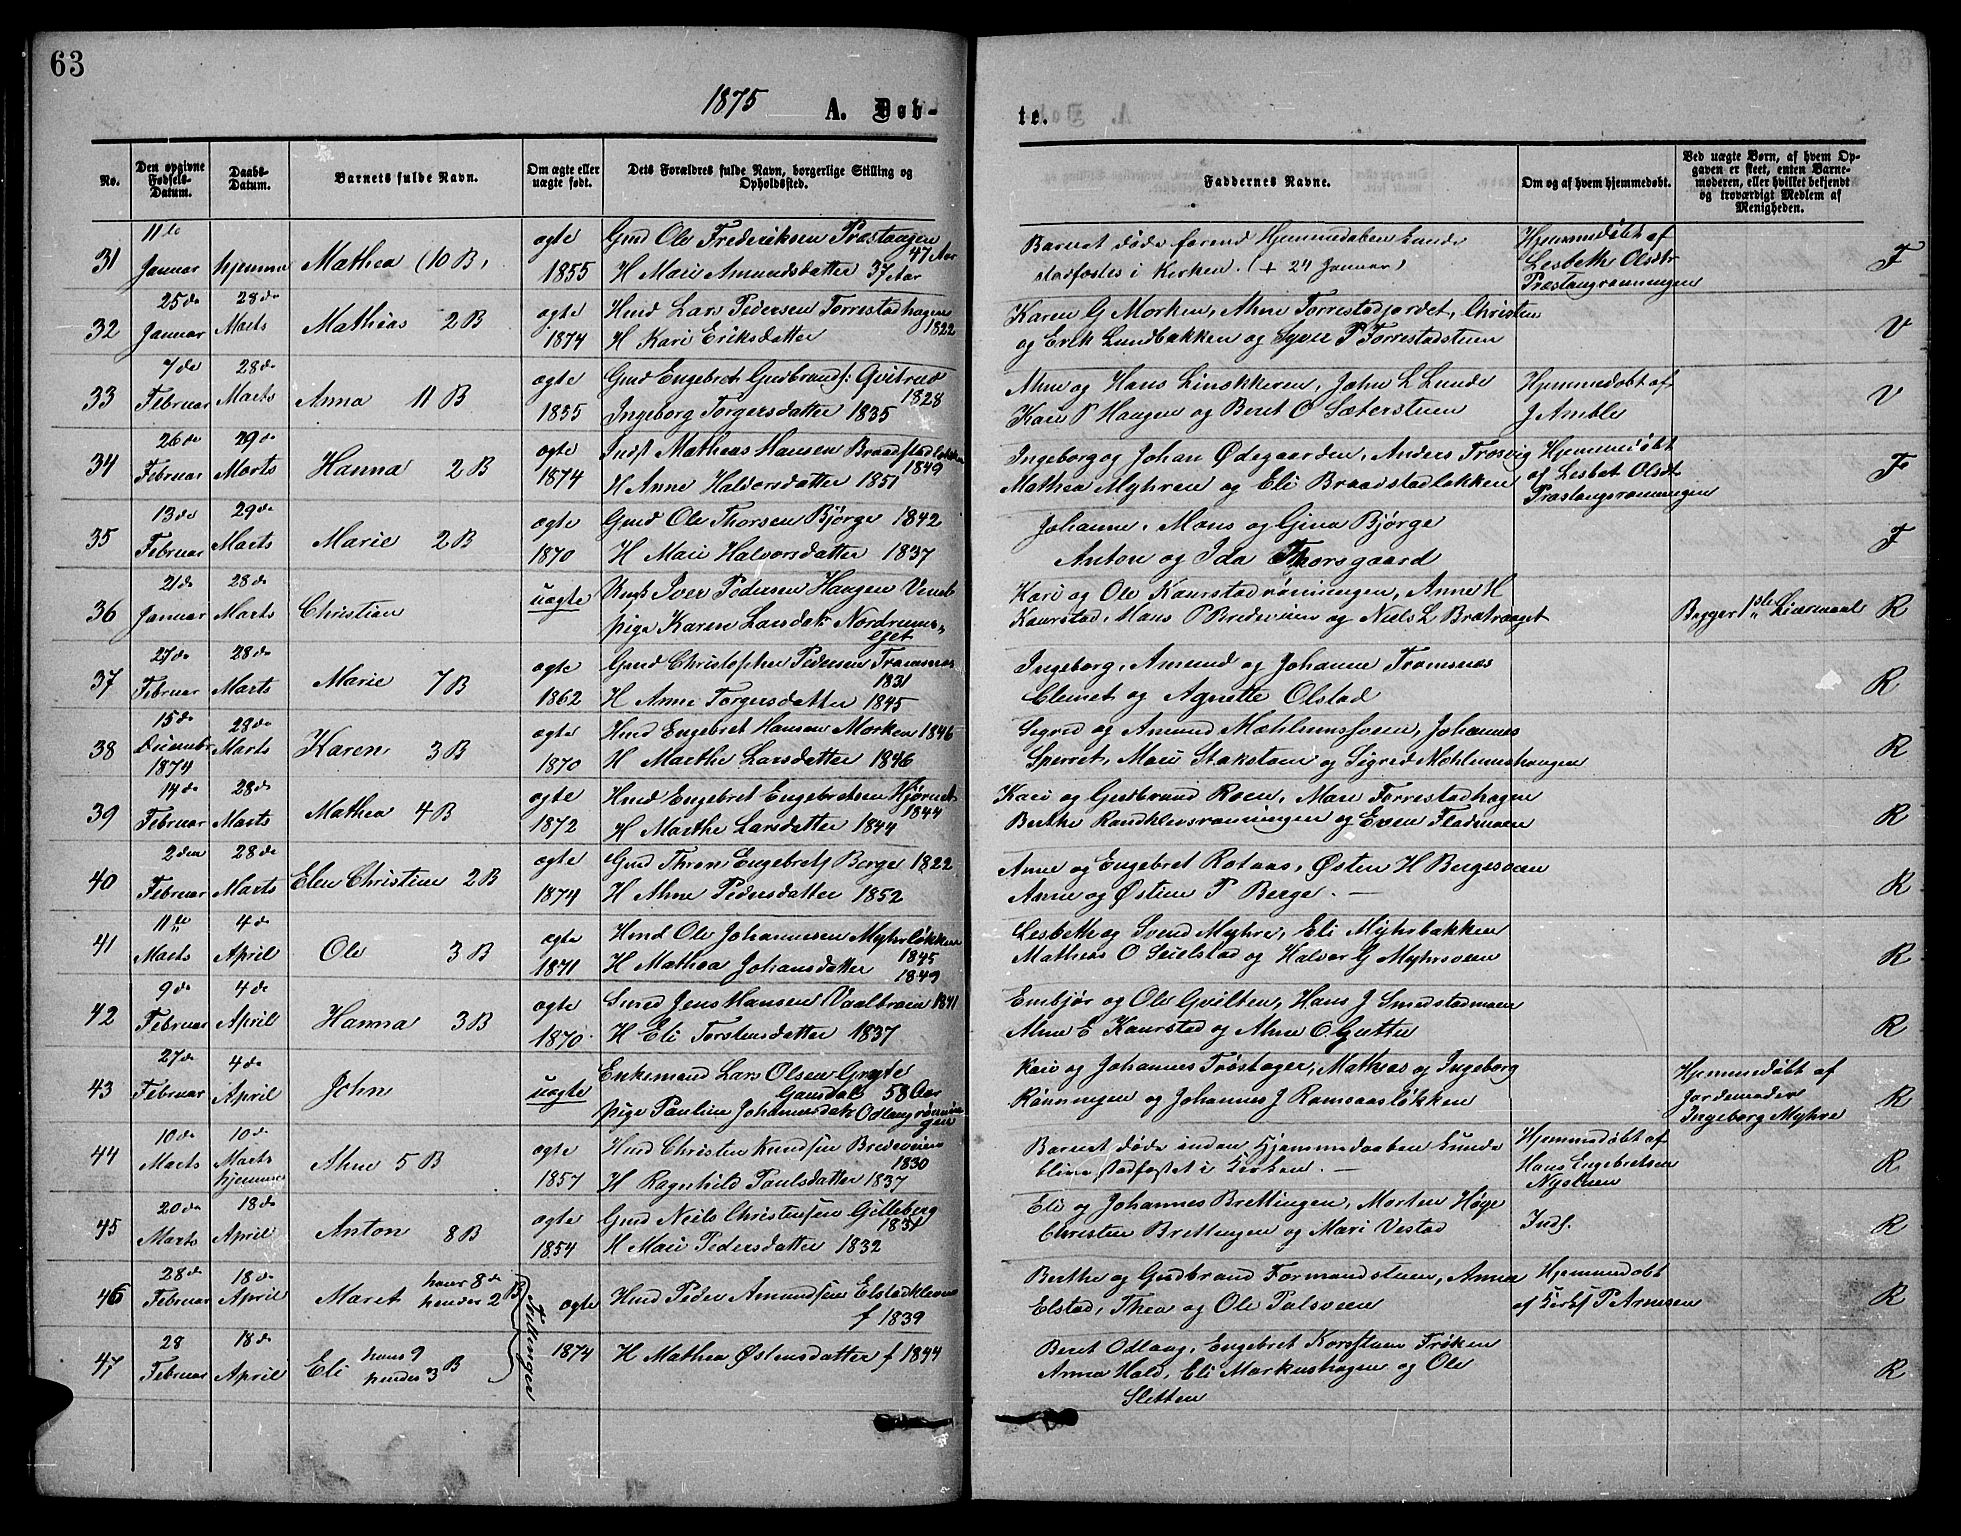 63
1875 A. Døb-
te.
No.
Den opgivne Fødsels-Datum.
Daabs-Datum.
Barnets fulde Navn.
Om ægte eller uægte født.
Dets Forældres fulde Navn, borgerlige Stilling og Opholdssted.
Faddernes Navne.
Om og af hvem hjemmedøbt.
Ved uægte Børn, af hvem Op-
gaven er skeet, enten Barne-
moderen, eller hvilket bekjendt
og troværdigt Medlem af
Menigheden.
31 11te Januar hjemme Mathea (10 B, ægte 1855
Gmd Ole Frederiksen Præstangen 47 Aar
H Mari Amundsdatter 37 Aar
Barnet døde førend Hjemmedaaben kunde
stadfæstes i Kirken. (+ 24 Januar)
Hjemmedøbt af
Lesbeth Olsdtr
Præstangrønningen
F
32 25de Januar 28de Marts Mathias 2 B ægte 1874
Hmd Lars Pedersen Forrestadhagen 1822
H Kari Eriksdatter
Karen G Morken, Ahne Forrestadjordet, Christen
og Erik Lundbakken og Syver P Forrestadstuen
V
33 7de Februar 28de Marts Anna 11 B ægte 1855
Gmd Engebret Gudbrands: Qvitrud 1828
Ingeborg Torgersdatter 1835
Ahne og Hans Linökkeren, John L Lunde
Kari P Haugen og Beret O Sæterstuen
Hjemmedøbt af
J Amble
V
34 26de Februar 29de Marts Hanna 2 B ægte 1874
Indst Mathias Hansen Braadstadløkken 1849
H Anne Halvorsdatter 1851
Ingeborg og Johan Ødegaarden, Anders Trosvig
Mathea Myhren og Eli Braadstadløkken
Hjemmedøbt
af Lesbet Olsdt
Præstangrønningen
F
35 13de Februar 29de Marts Marie 2 B ægte 1870
Gmd Ole Thorsen Bjørge 1842
H Mari Halvorsdatter 1837
Johanne, Mons og Gina Bjørge
Anton og Ida Thorsgaard
F
36 21de Januar 28de Marts Christian uægte
Ungk Iver Pedersen Haugen Veneb
pige Karen Larsdatr Nordrums-
ejet
Kari og Ole Kaurstadrønningen, Anne H
Kaurstad, Hans P Bredeviien og Niels L Bratvaaget
Begges 1ste Leiermaal
R
37 27de Februar 28de Marts Marie 7 B ægte 1862
Gmd Christopher Pedersen Tromsnæs 1831
H Anne Torgersdatter 1845
Ingeborg, Amund og Johanne Tromsnes
Clemet og Agnette Olstad
R
38 15de December 1874 28de Marts Karen 3 B ægte 1870
Hmd Engebret Hansen Morken 1846
H Marthe Larsdatter 1846
Sigrid og Amund Mæhlumsveen, Johannes
Sperret, Mari Stakston og Sigrid Mæhlumshaugen
R
39 14de Februar 28de Marts Mathea 4 B ægte 1872
Hmd Engebret Engebretsen Hjørnet 1844
H Marthe Larsdatter 1844
Kari og Gudbrand Roen, Mari Forrestadhagen
Berthe Randklevsrønningen og Even Fladmoen
R
40 2den Februar 28de Marts Elen Christine 2 B ægte 1874
Gmd Thron Engebrets Berge 1822
H Ahne Pedersdatter 1852
Anne og Engebret Rotaas, Østen H Bergesveen
Anne og Østine P Berge. —
R
41 11te Marts 4de April Ole 3 B ægte 1871
Hmd Ole Johannesen Myhrløkken 1845
H Mathea Johansdatter 1849
Lesbeth og Svend Myhre, Eli Myhrbakken
Mathias O Seielstad og Halvor G Myhrsveen
R
42 9de Februar 4de April Hanna 3 B ægte 1870
Smed Jens Hansen Vaalbroen 1841
H Eli Torstensdatter 1837
Embjør og Ole Gvilten, Hans J Smedstadmoen
Ahne E Kaurstad og Ahne O Gutter
R
43 27de Februar 4de April John uægte
Enkemand Lars Olsen Gryte
Gausdal 58 Aar
pige Pauline Johannesdatr Odlaugrønnin
gen
Kari og Johannes Trøstager, Mathias og Ingeborg
Rønningen og Johannes J Ramsaasløkken
Hjemmedøbt af
Jordemoder
Ingeborg Myhre
R
44 10de Marts 10de Marts hjemme Ahne 5 B ægte 1857
Hmd Christen Knudsen Bredeviien 1830
H Ragnhild Paulsdatter 1837
Barnet døde inden Hjemmedaaben kunde
blive stadfæstet i Kirken. —
Hjemmedøbt af
Hans Engebretsen
Nystuen
R
45 20de Marts 18de April Anton 8 B ægte 1854
Gmd Niels Christensen Gilleberg 1831
H Mari Pedersdatter 1832
Eli og Johannes Brettingen, Morten Høge
Christen Brettingen og Mari Vestad
Inds.
R
46 28de Februar 18de April Maret hans 8de hendes 2 B Tvillinger ægte
Hmd Peder Amundsen Elstadkleven
f 1839
Berthe og Gudbrand Formandstuen, Anna
Elstad, Thea og Ole Palsveen
Hjemmedøbt
af Kirks P Arnesen
R
47 28 Februar 18de April Eli hans 9 hendes 3 B 1874
H Mathea Østensdatter f 1844
Beret Odlaug, Engebret Korsstuen Frøken
Anna Hald, Eli Markushagen og Ole
Sletten
R